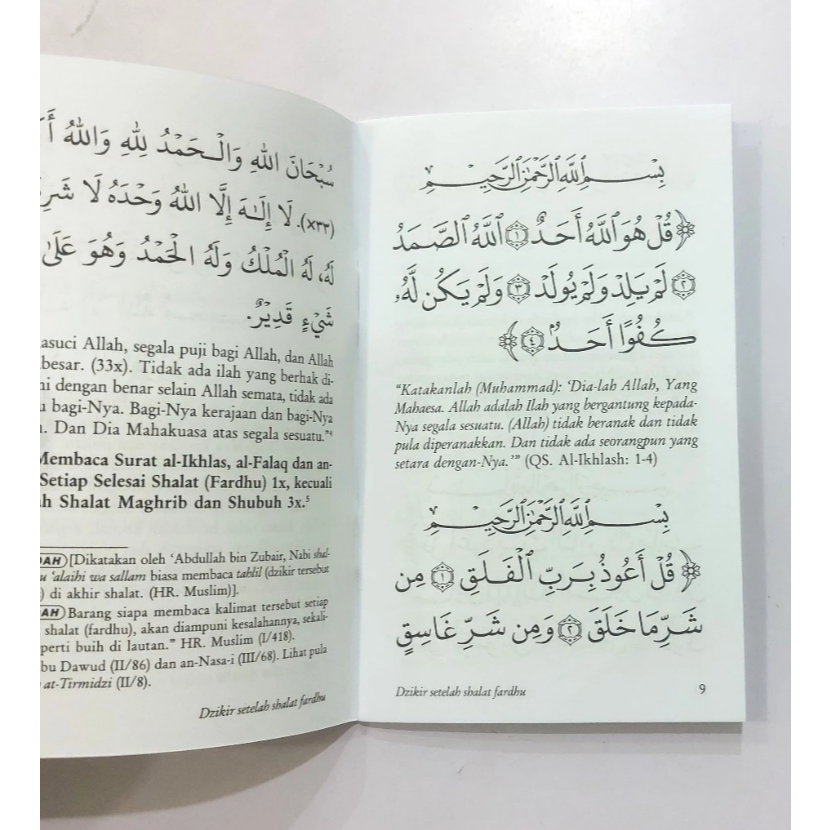 سُبْحَانَ اللهِ وَالْحَمْدُ لِلهِ وَاللهُ
(×٣٣). لَا إِلَهَ إِلَّا اللهُ وَحْدَهُ لَا
لَهُ، لَهُ الْمُلْكُ وَلَهُ الْحَمْدُ وَهُوَ عَلَى
شَيْءٍ قَدِيْرٌ.
Allah, segala puji bagi Allah, dan Allah
besar. (33x). Tidak ada ilah yang berhak di-
dengan benar selain Allah semata, tidak ada
bagi-Nya. Bagi-Nya kerajaan dan bagi-Nya
Dan Dia Mahakuasa atas segala sesuatu.”⁴
Membaca Surat al-Ikhlas, al-Falaq dan an-
Setiap Selesai Shalat (Fardhu) 1x, kecuali
Shalat Maghrib dan Shubuh 3x.⁵
[Dikatakan oleh ‘Abdullah bin Zubair, Nabi shal-
‘alaihi wa sallam biasa membaca tahlil (dzikir tersebut
di akhir shalat. (HR. Muslim)].
Barang siapa membaca kalimat tersebut setiap
shalat (fardhu), akan diampuni kesalahannya, sekali-
buih di lautan.” HR. Muslim (I/418).
Dawud (II/86) dan an-Nasa-i (III/68). Lihat pula
at-Tirmidzi (II/8).
Dzikir setelah shalat fardhu
بِسْمِ اللَّهِ الرَّحْمَٰنِ الرَّحِيمِ
﴿قُلْ هُوَ اللَّهُ أَحَدٌ ١ اللَّهُ الصَّمَدُ
٢ لَمْ يَلِدْ وَلَمْ يُولَدْ ٣ وَلَمْ يَكُن لَّهُۥ
كُفُوًا أَحَدٌۢ ٤﴾
“Katakanlah (Muhammad): ‘Dia-lah Allah, Yang
Mahaesa. Allah adalah Ilah yang bergantung kepada-
Nya segala sesuatu. (Allah) tidak beranak dan tidak
pula diperanakkan. Dan tidak ada seorangpun yang
setara dengan-Nya.’” (QS. Al-Ikhlash: 1-4)
بِسْمِ اللَّهِ الرَّحْمَٰنِ الرَّحِيمِ
﴿قُلْ أَعُوذُ بِرَبِّ الْفَلَقِ ١ مِن
شَرِّ مَا خَلَقَ ٢ وَمِن شَرِّ غَاسِقٍ
Dzikir setelah shalat fardhu 9